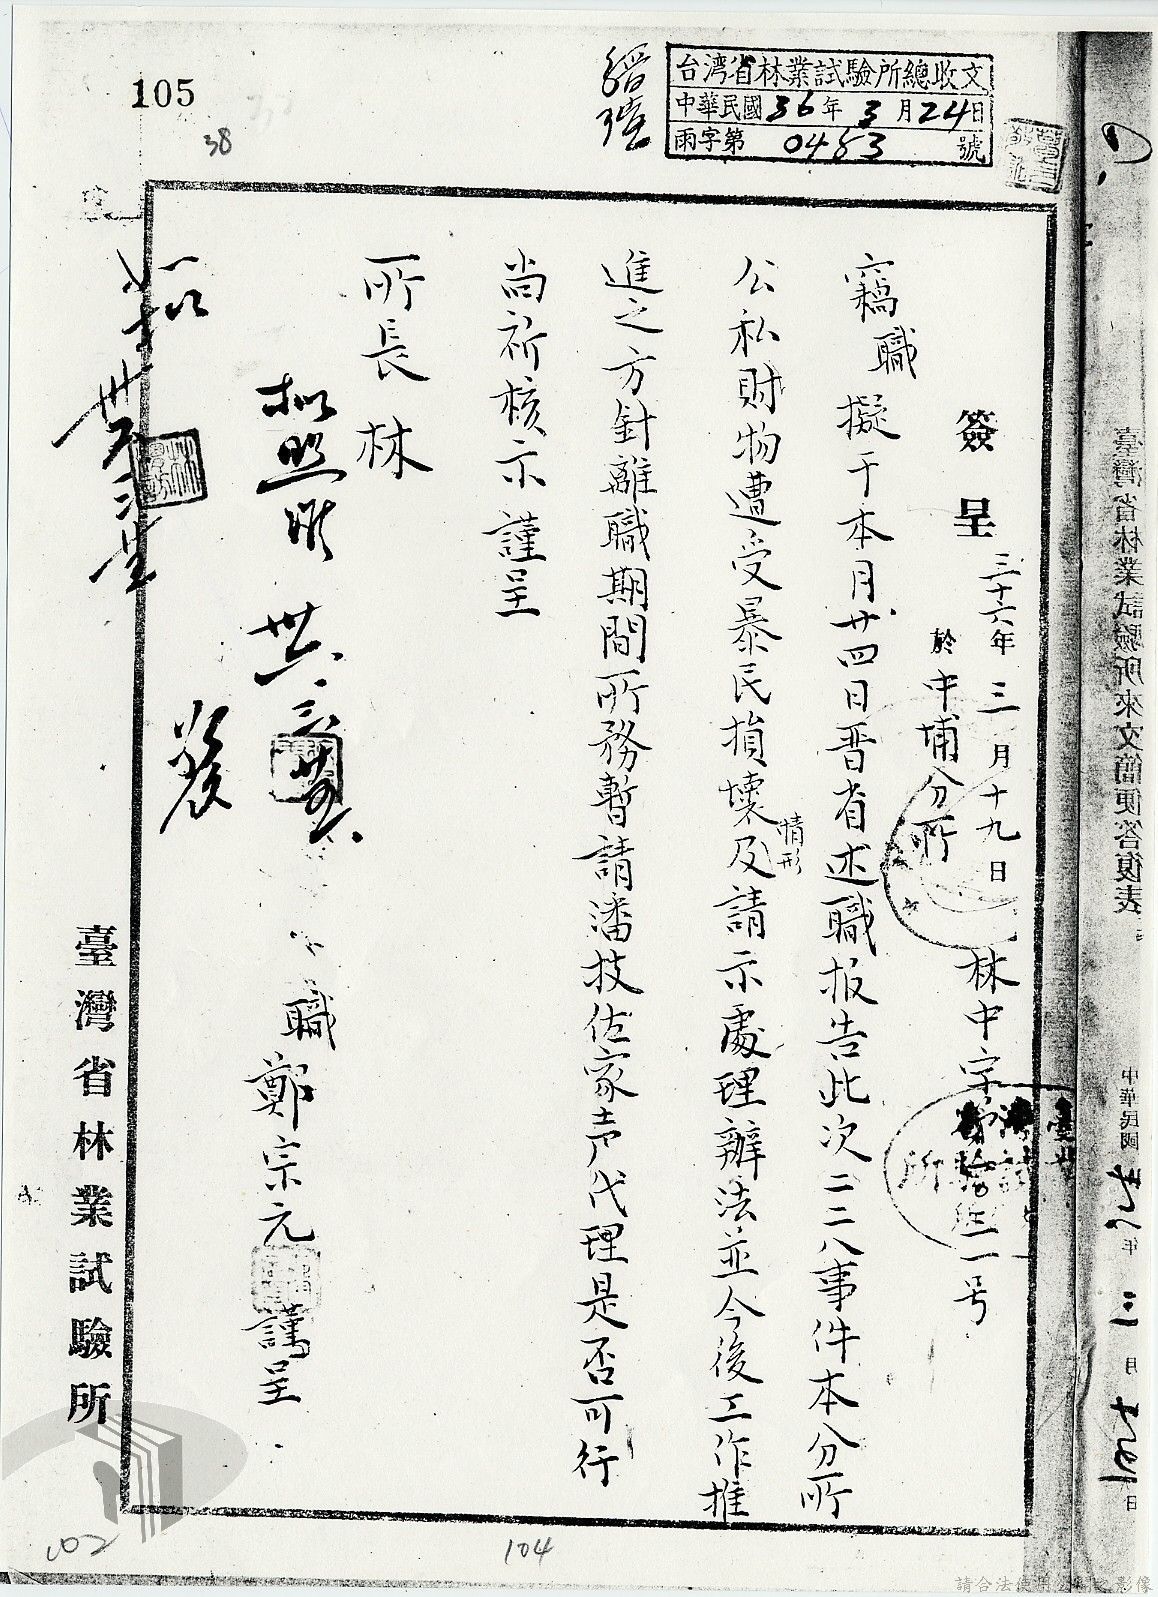 105
38
台湾省林業試驗所總收文
中華民國36年3月24日
雨字第0483號
簽呈
三十六年三月十九日
於中埔分所
林中字第
一号
竊職擬于本月廿四日晋省述職报告此次二二八事件本分所
公私財物遭受暴民損壞情形及請示處理辦法並今後工作推
進之方針離職期間所務暫請潘技佐家声代理是否可行
尚祈核示謹呈
所長林
職鄭宗元謹呈
擬照准
發
臺灣省林業試驗所
臺灣省林業試驗所來文簡便答復表
中華民國
年三月
日
102
104
請合法使用公開之影像